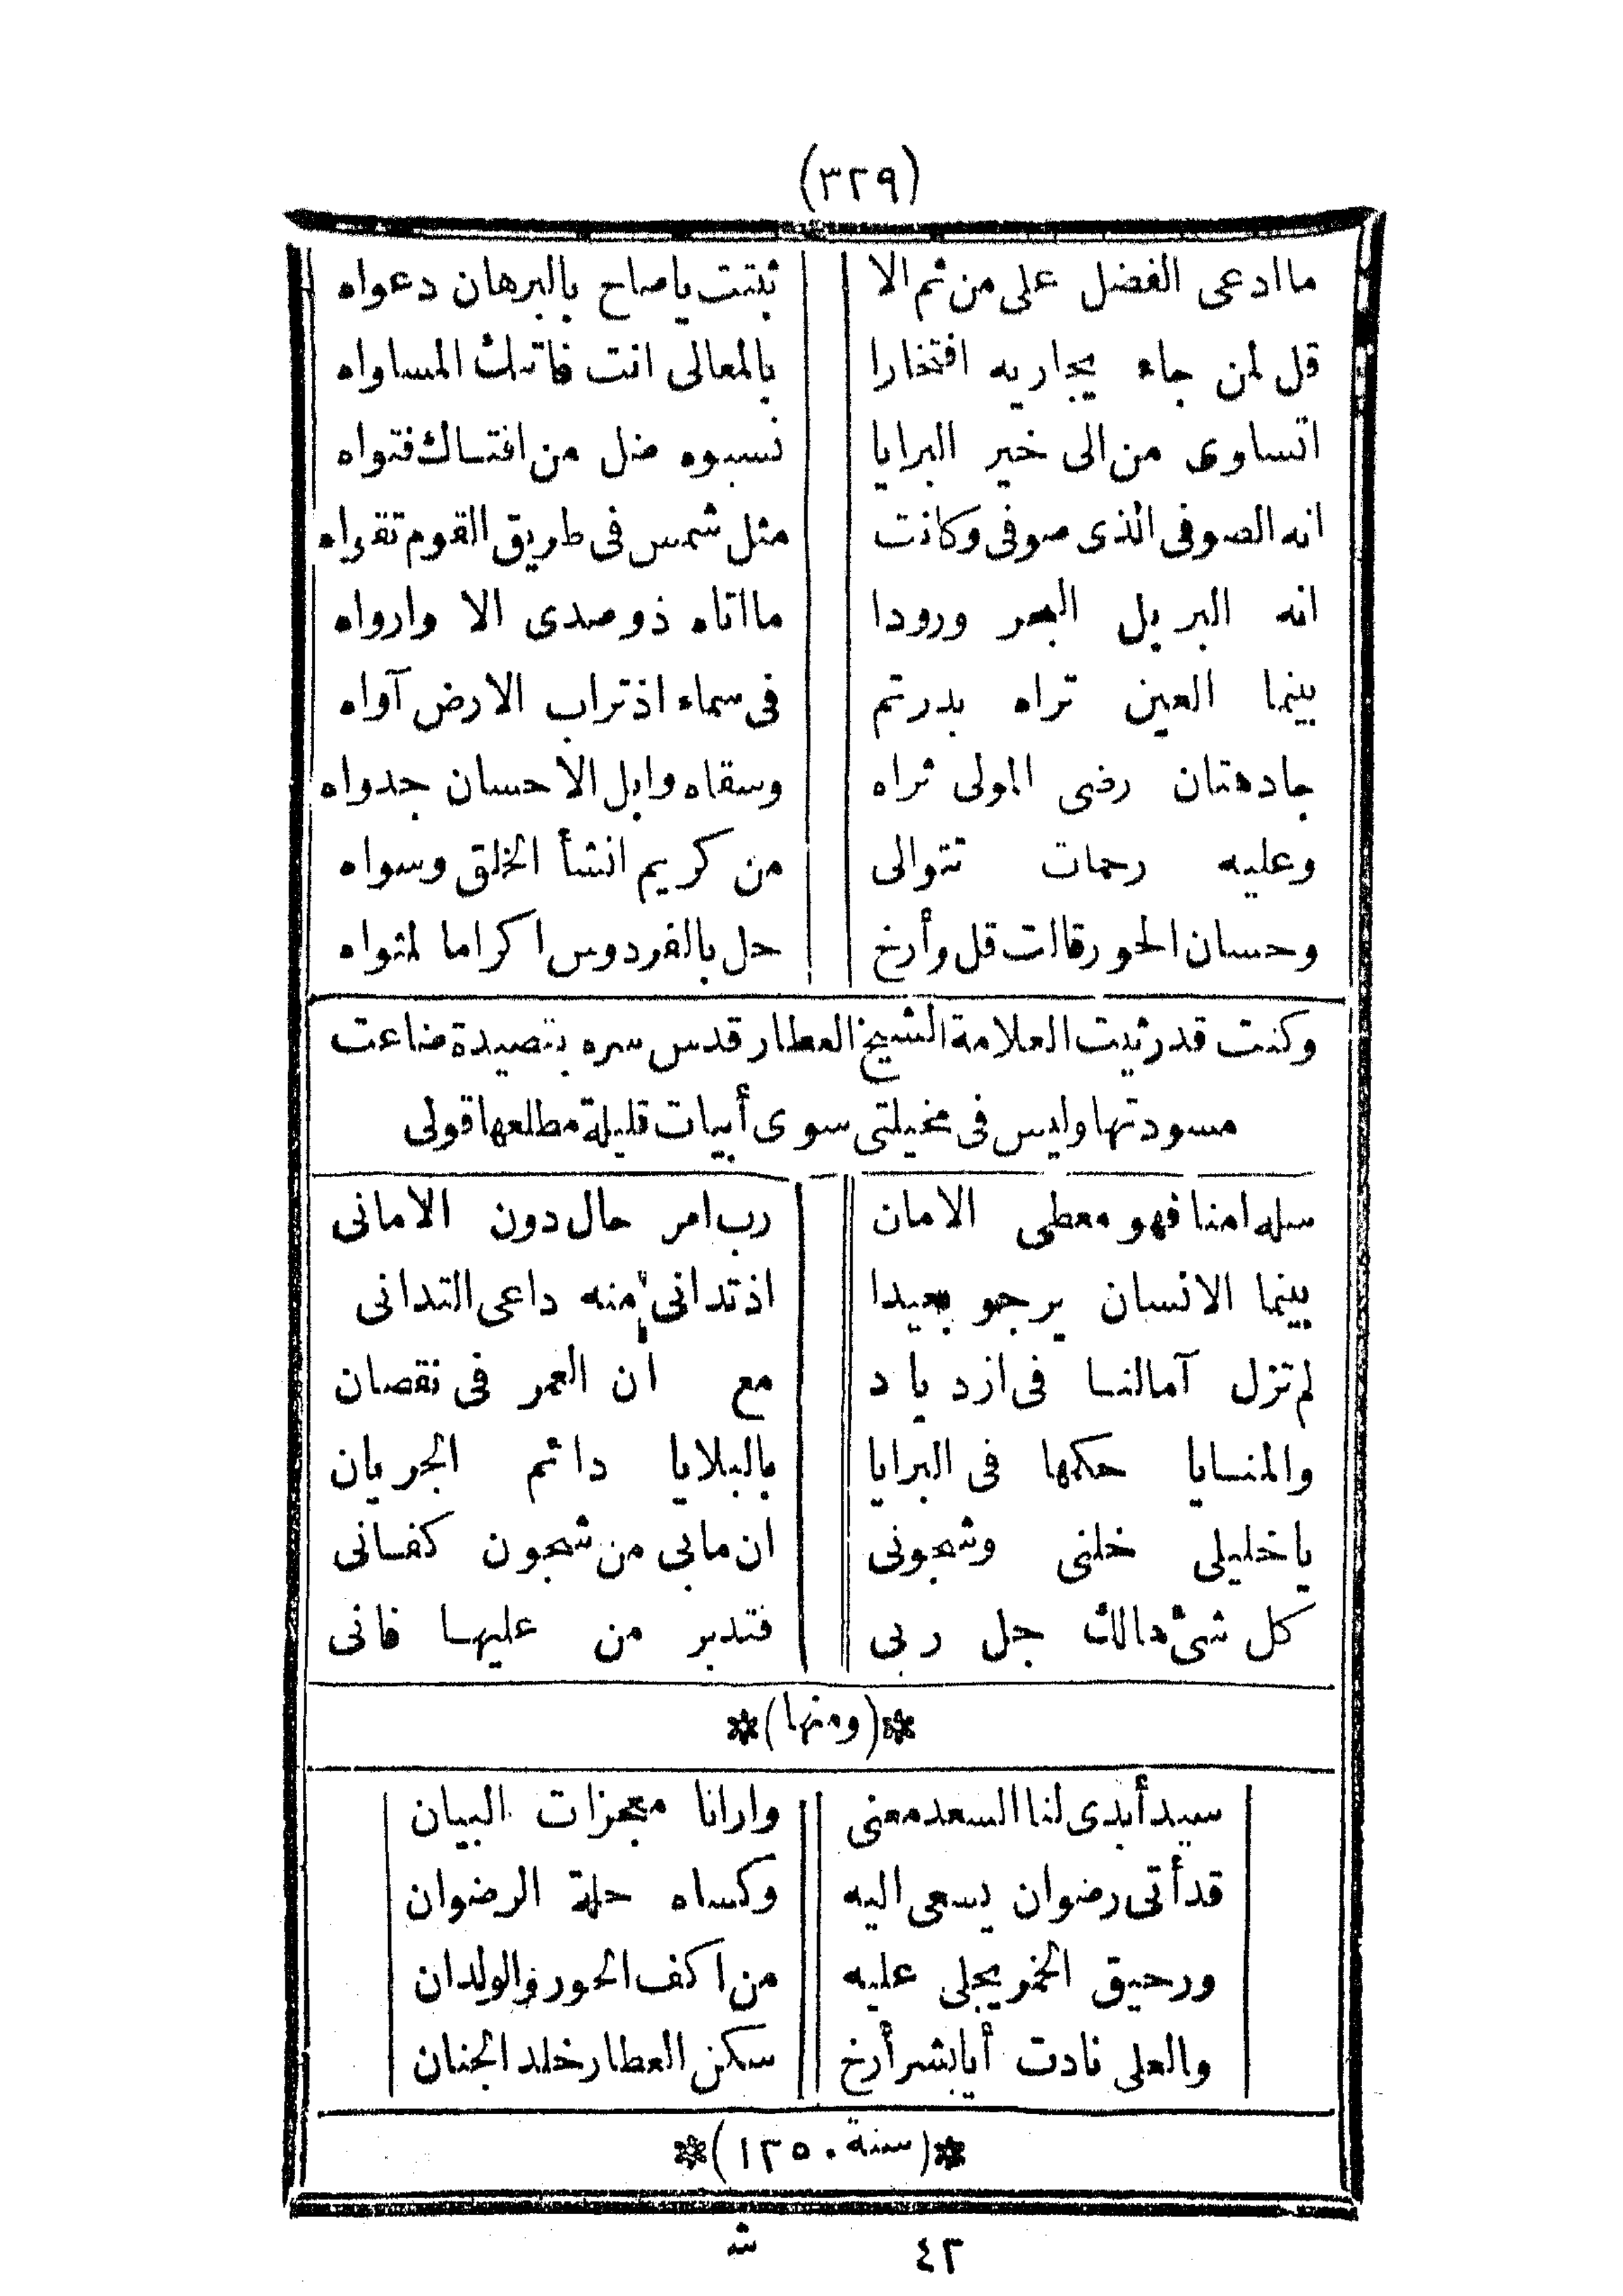 (٣٢٩)
ما ادعى الفضل على من ثم الا ثبتت يا صاح بالبرهان دعواه
قل لمن جاء يجاريه افتخارا بالمعالى انت فاتتك المساواه
اتساوى من الى خير البرايا نسبوه ضل من افتاك فتواه
انه الصوفى الذى صوفى وكانت مثل شمس فى طريق القوم تقراه
انه البر بل البحر ورودا ما اتاه ذو صدى الا وارواه
بينما العين تراه بدر تم فى سماء اذ تراب الارض آواه
جاد هتان رضى المولى ثراه وسقاه وابل الاحسان جدواه
وعليه رحمات تتوالى من كريم انشأ الخلق وسواه
وحسان الحور قالت قل وأرخ حل بالفردوس اكراما لمثواه
وكنت قد رثيت العلامة الشيخ العطار قدس سره بقصيدة ضاعت
مسودتها وليس فى مخيلتى سوى أبيات قليلة مطلعها قولى
سله امنا فهو معطى الامان رب امر حال دون الامانى
بينما الانسان يرجو بعيدا اذ تدانى منه داعى التدانى
لم تزل آمالنا فى ازدياد مع ان العمر فى نقصان
والمنايا حكمها فى البرايا بالبلايا دائم الجريان
يا خليلى خلنى وشجونى ان مابى من شجون كفانى
كل شئ هالك جل ربى فتدبر من عليها فانى
*(ومنها)*
سيد أبدى لنا السعد معنى وارانا معجزات البيان
قد أتى رضوان يسعى اليه وكساه حلة الرضوان
ورحيق الخمر يجلى عليه من اكف الحور والولدان
والعلى نادت أيا بشر أرخ سكن العطار خلد الجنان
*(سنة ١٢٥٠)*
٤٢ ش